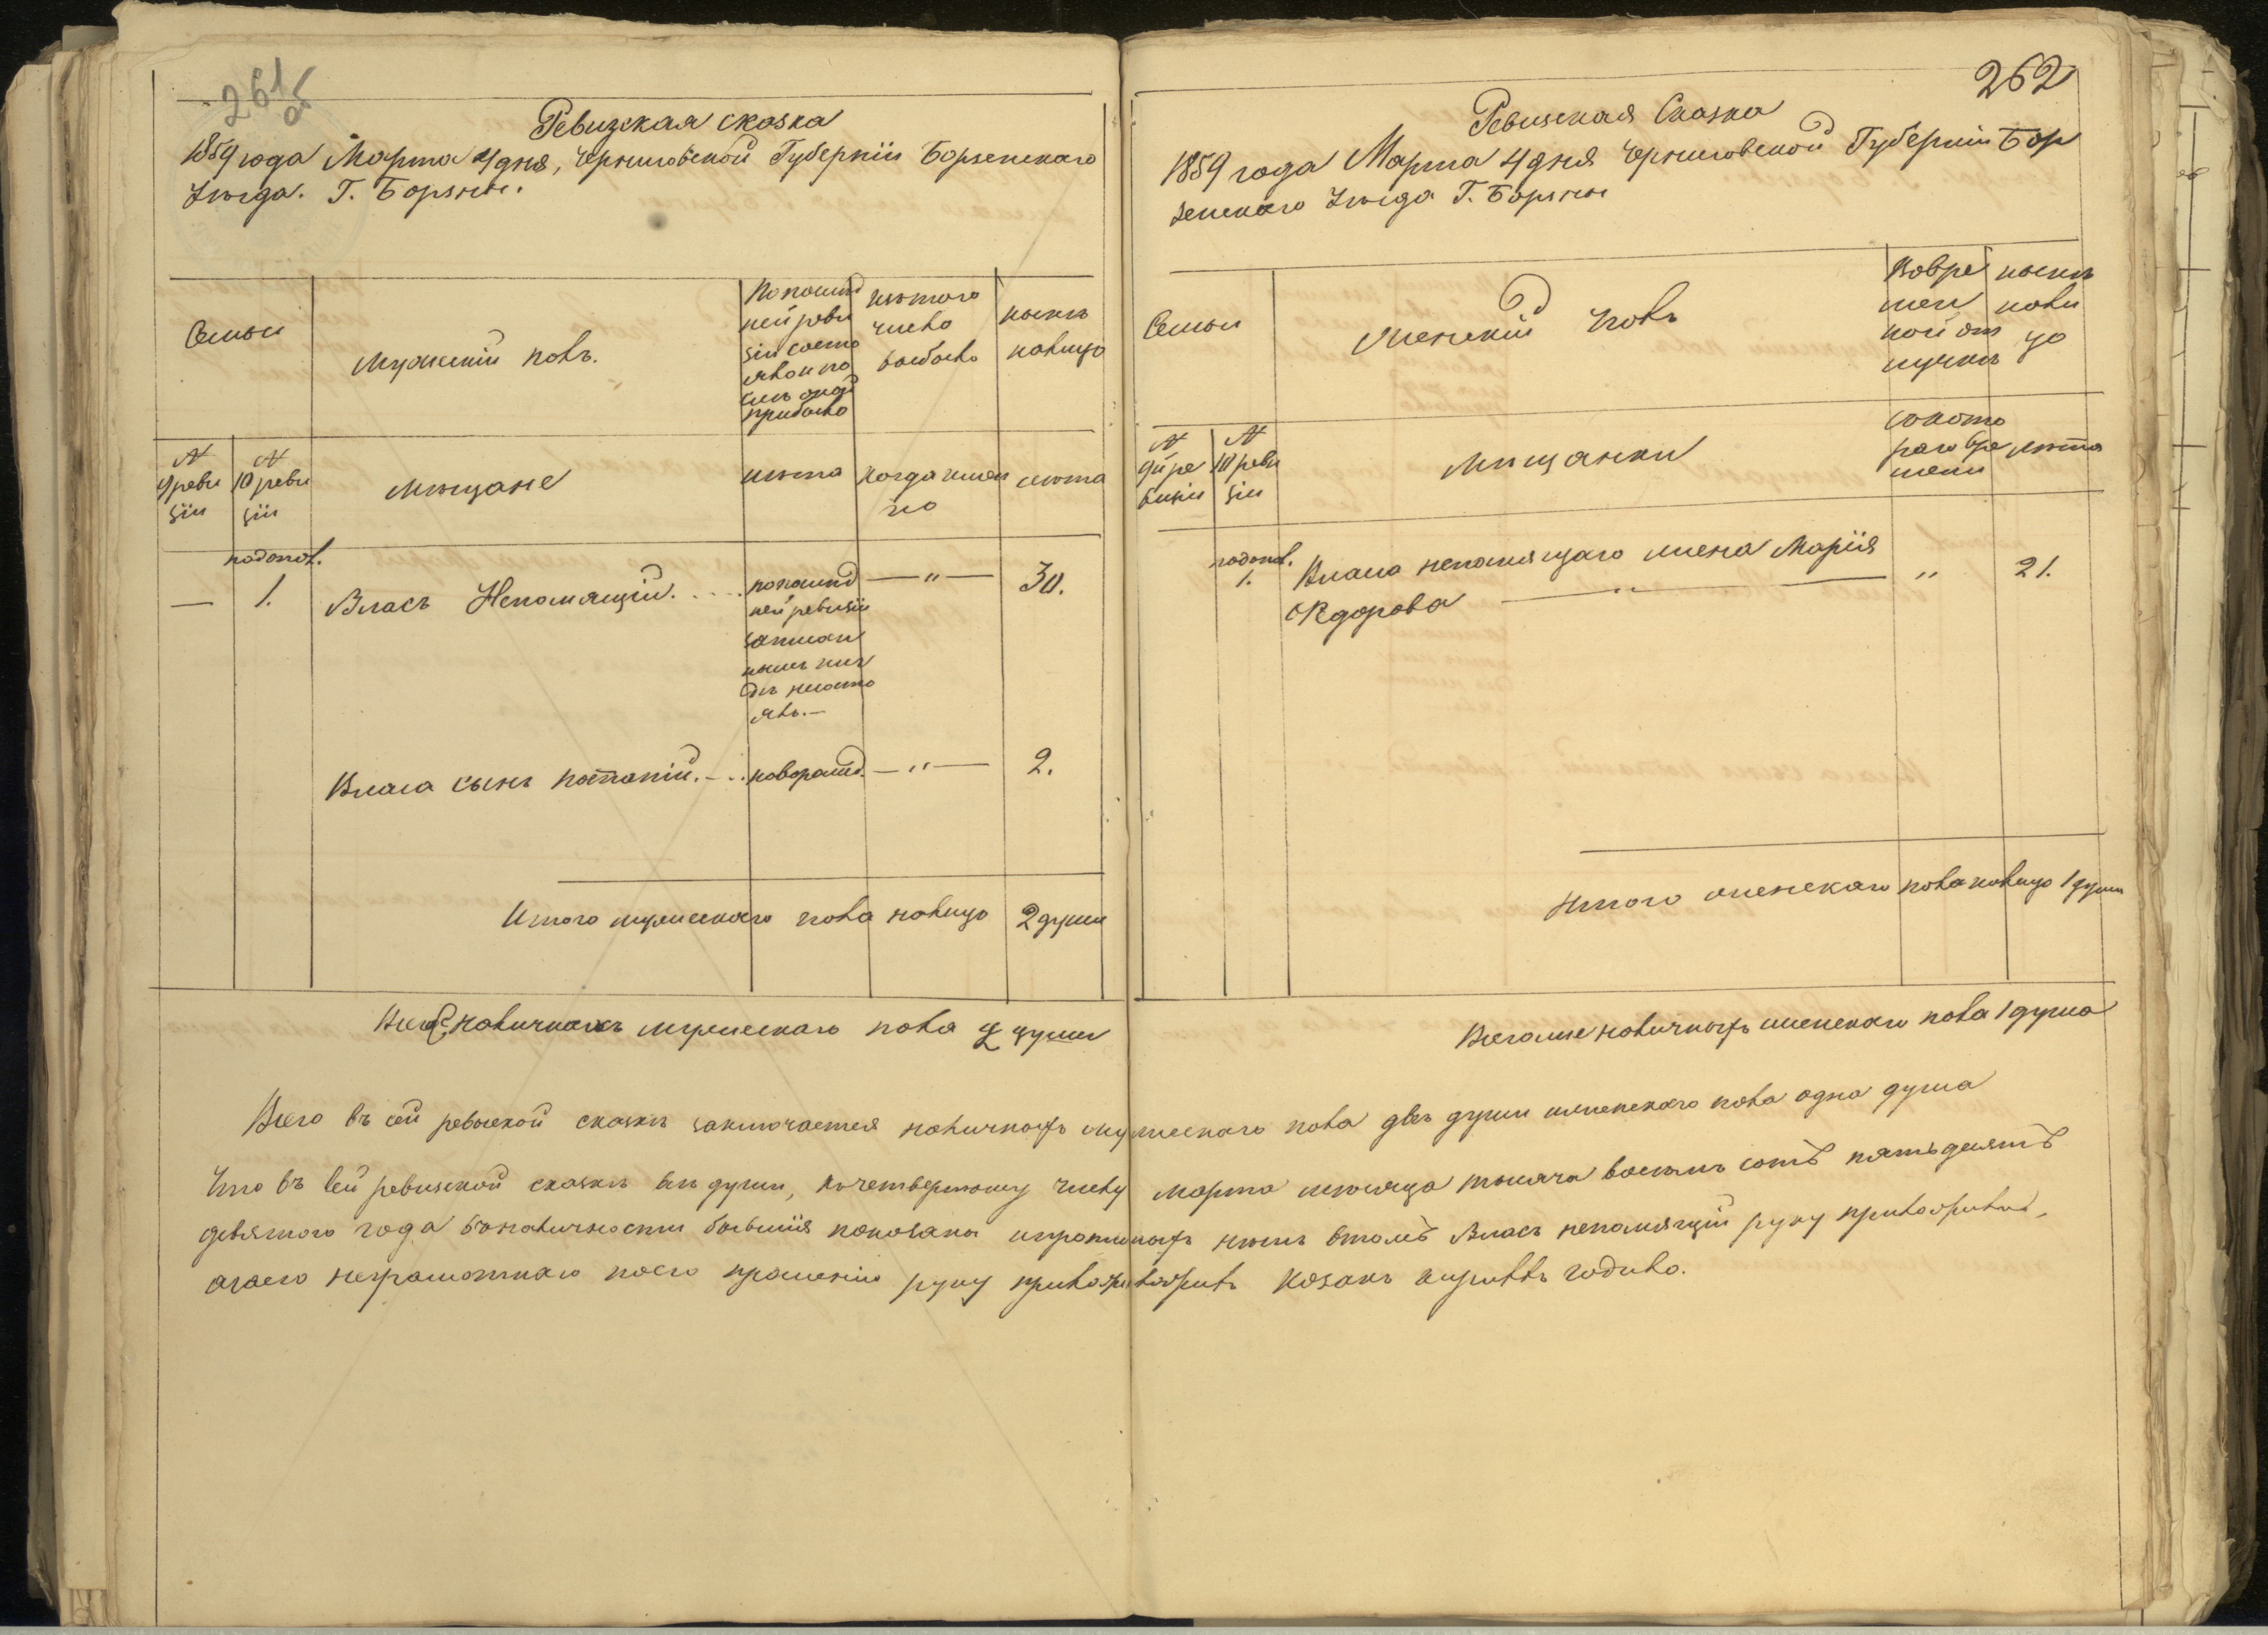 261 об
Ревизская сказка
1859 года Марта 4 дня, Черниговской Губерніи Борзенскаго
Уѣзда. Г. Борзны.
Семьи
Мужескій полъ.
По послѣд
ней реви
зіи состо
яло и по
слѣ оной
прибыло
изъ того
числа
выбыло
нынѣ
налицо
№ 9 реви
зіи
№ 10 реви
зіи
Мѣщане
лѣта
когда имен
но
лѣта
подопол.
— 1.
Власъ Непомнящій. . . . по послѣд — „ — 30.
ней ревизіи
записан
нымъ ниг
дѣ не состо
ялъ.—
Власа сынъ Потапій. — . . новорожд. — „ — 2.
Итого мужескаго пола налицо 2 души
Всего наличныхъ мужескаго пола 2 души
262
Ревизская Сказка
1859 года Марта 4 дня Черниговской Губерніи Бор
зенскаго Уѣзда Г. Борзны
Семьи
Женскій Полъ
Вовре
мен
ной от
лучкѣ
нынѣ
нали
цо
№ 9й ре
визіи
№ 10 реви
зіи
Мѣщанки
съ кото
раго вре
мени
лѣта
подопол.
1.
Власа непомнящаго жена Марія „ 21.
Федорова — „ —
Итого женскаго пола налицо 1 душа
Всего же наличныхъ женскаго пола 1 душа
Всего въ сей ревизской сказкѣ заключается наличныхъ мужескаго пола двѣ души женскаго пола одна душа
Что въ сей ревизской сказкѣ всѣ души, къ четвертому числу Марта мѣсяца тысяча восемь сотъ пятьдесятъ
девятого года в наличности бывшія показаны и пропис­ныхъ нѣтъ в томъ Власъ непомнящій руку приложилъ,
а за его неграмотнаго по его прошенію руку приложилъ Козакъ